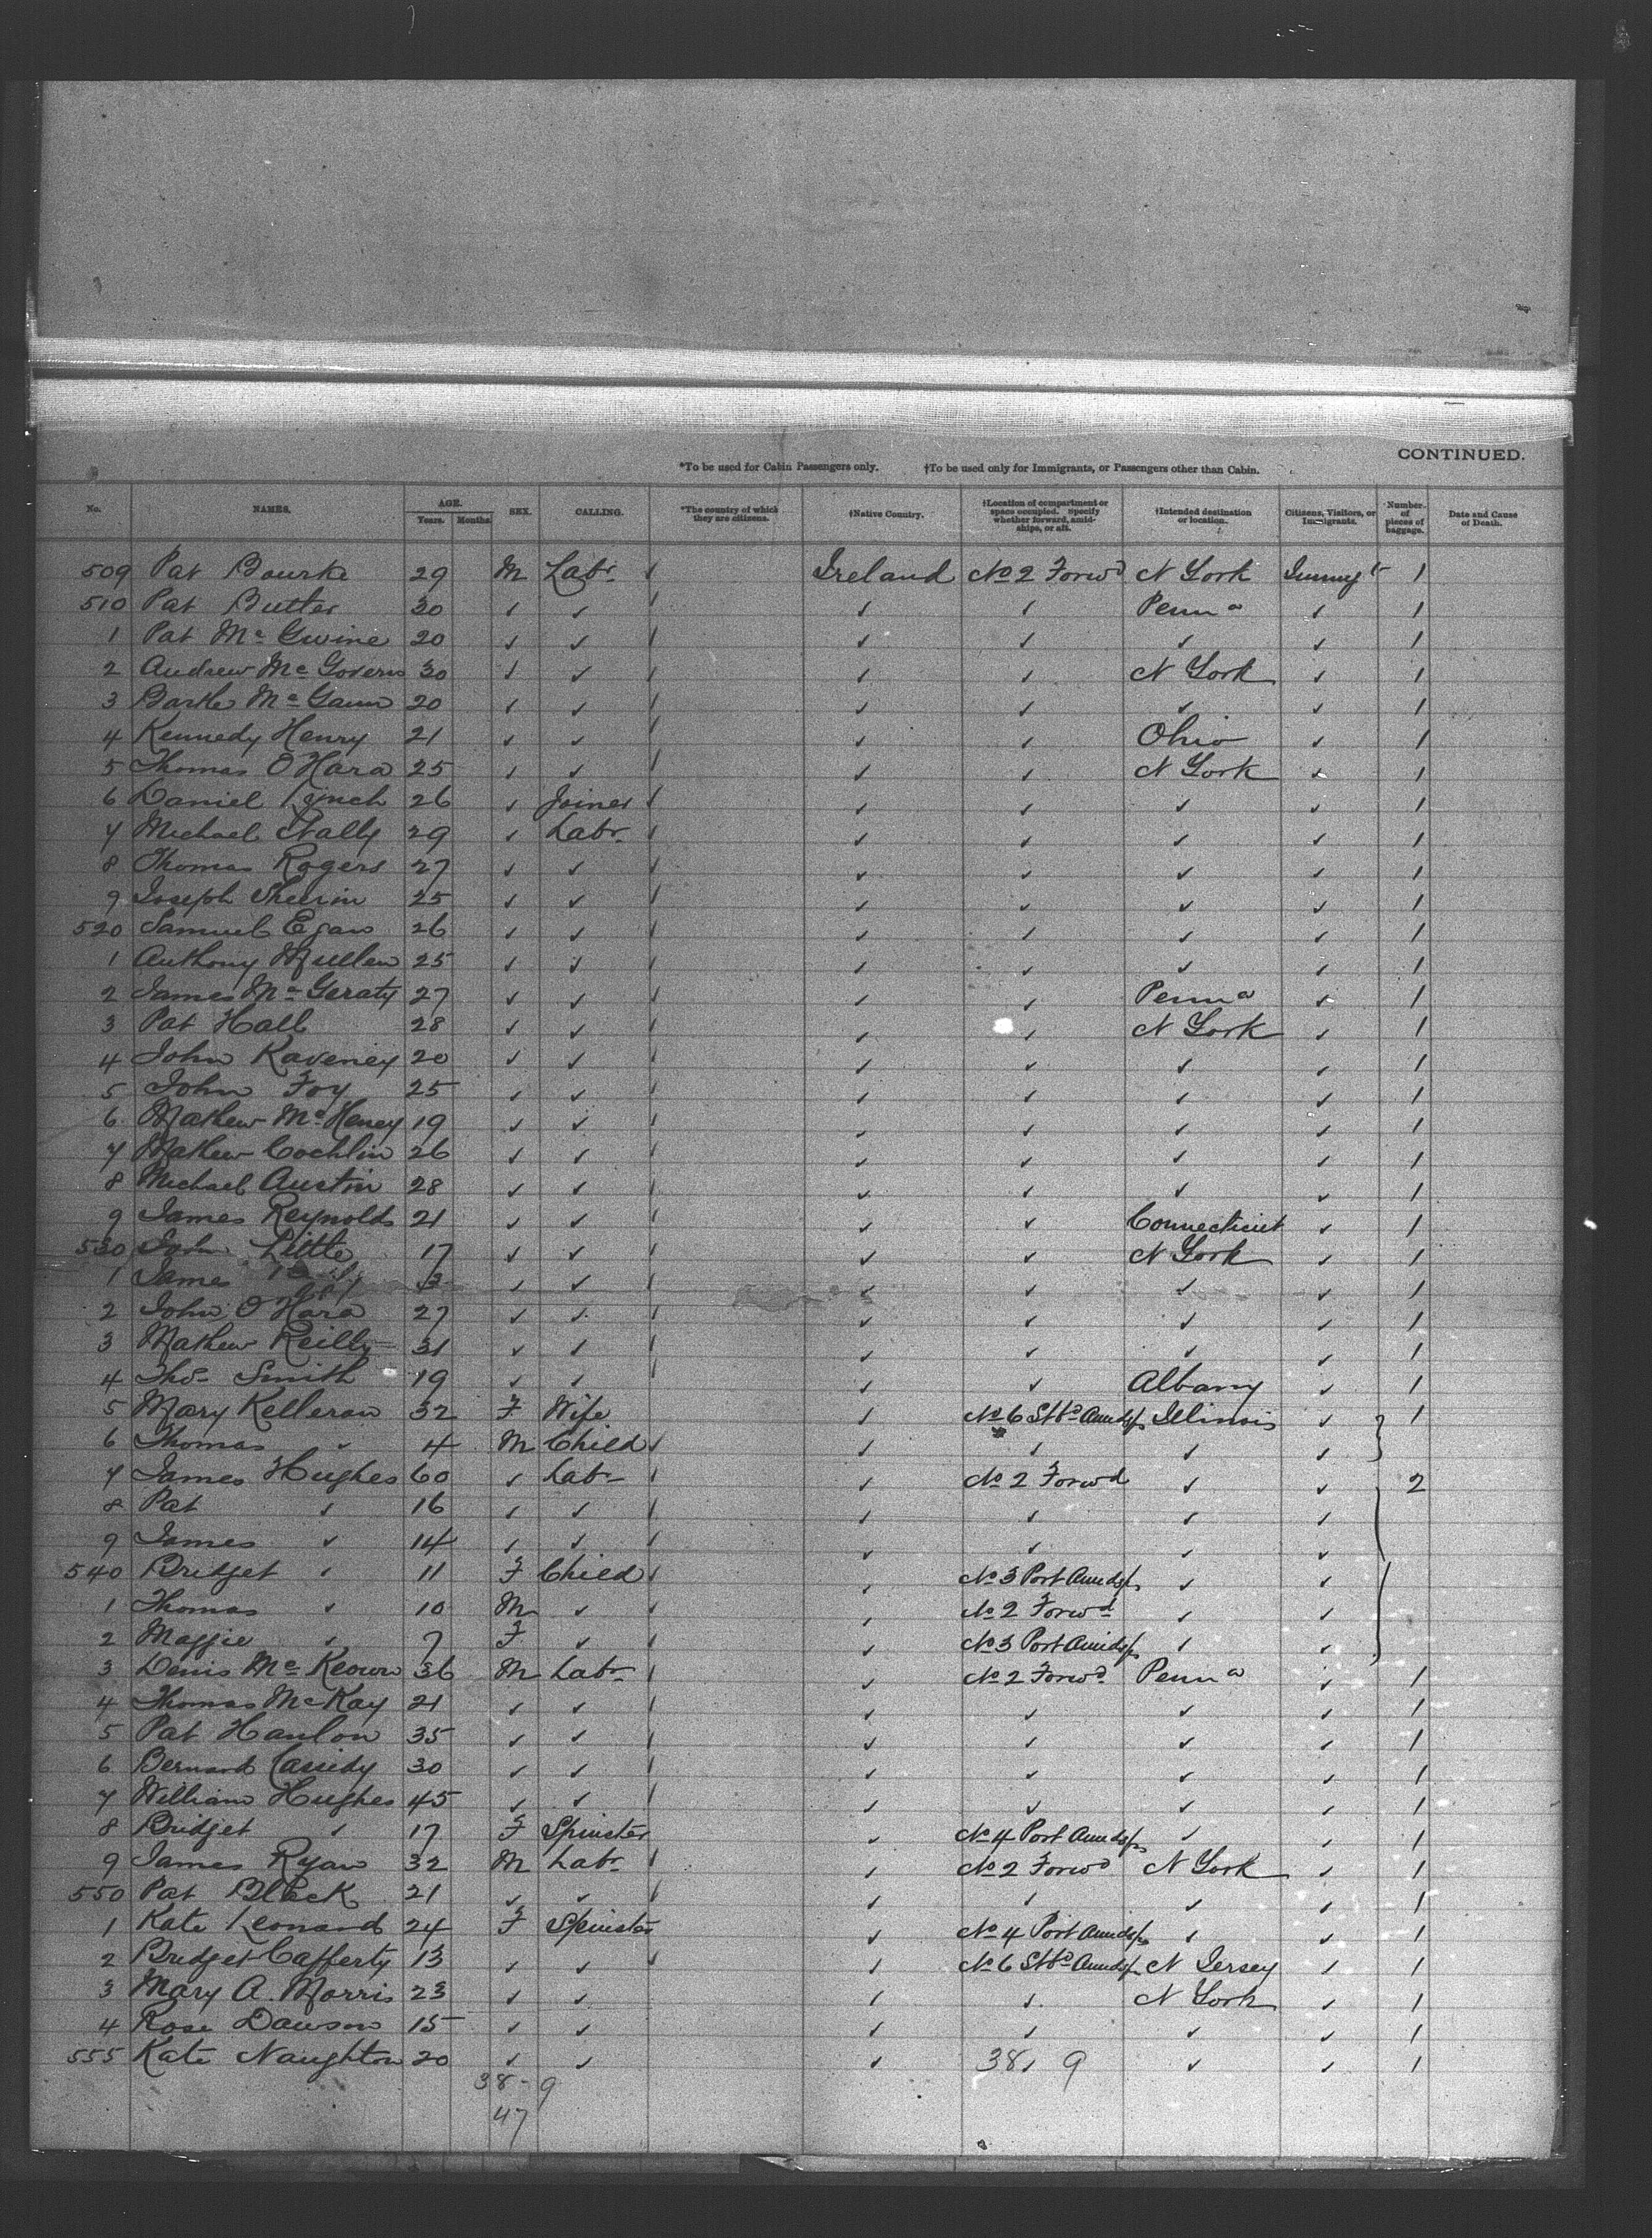 CONTINUED.
*To be used for Cabin Passengers only. †To be used only for Immigrants, or Passengers other than Cabin.
No. NAMES. AGE. Years. Months. SEX. CALLING. *The country of which they are citizens. †Native Country. †Location of compartment or space occupied. Specify whether forward, amidships, or aft. †Intended destination or location. Citizens, Visitors, or Immigrants. Number of pieces of baggage. Date and Cause of Death.
509 Pat Bourke 29 M Labr Ireland No 2 Forwd N York 1
510 Pat Butler 30 ✓ ✓ ✓ ✓ Penna ✓ 1
1 Pat Mc Gwine 20 ✓ ✓ ✓ ✓ ✓ ✓ 1
2 Andrew Mc Govern 30 ✓ ✓ ✓ ✓ N York ✓ 1
3 Barth Mc Gann 20 ✓ ✓ ✓ ✓ ✓ ✓ 1
4 Kennedy Henry 21 ✓ ✓ ✓ ✓ Ohio ✓ 1
5 Thomas O'Hara 25 ✓ ✓ ✓ ✓ N York ✓ 1
6 Daniel Lynch 26 ✓ Joiner ✓ ✓ ✓ ✓ 1
7 Michael Nally 29 ✓ Labr ✓ ✓ ✓ ✓ 1
8 Thomas Rogers 27 ✓ ✓ ✓ ✓ ✓ ✓ 1
9 Joseph 25 ✓ ✓ ✓ ✓ ✓ ✓ 1
520 Samuel Egan 26 ✓ ✓ ✓ ✓ ✓ ✓ 1
1 Anthony Mullen 25 ✓ ✓ ✓ ✓ ✓ ✓ 1
2 James Mc Geraty 27 ✓ ✓ ✓ ✓ Penna ✓ 1
3 Pat Hall 28 ✓ ✓ ✓ ✓ N York ✓ 1
4 John Kaveney 20 ✓ ✓ ✓ ✓ ✓ ✓ 1
5 John Foy 25 ✓ ✓ ✓ ✓ ✓ ✓ 1
6 Mathew Mc Heney 19 ✓ ✓ ✓ ✓ ✓ ✓ 1
7 Mathew Cochlin 26 ✓ ✓ ✓ ✓ ✓ ✓ 1
8 Michael Austin 28 ✓ ✓ ✓ ✓ ✓ ✓ 1
9 James Reynolds 21 ✓ ✓ ✓ ✓ Connecticut ✓ 1
530 John Little 17 ✓ ✓ ✓ ✓ N York ✓ 1
1 James ✓ ✓ ✓ ✓ ✓ 1
2 John O'Hara 27 ✓ ✓ ✓ ✓ ✓ ✓ 1
3 Mathew Reilly 31 ✓ ✓ ✓ ✓ ✓ ✓ 1
4 Thos Smith 19 ✓ ✓ ✓ ✓ Albany ✓ 1
5 Mary Kelleran 32 F Wife ✓ No 6 Stbd Amidsps Illinois ✓ 1
6 Thomas ✓ 4 M Child ✓ ✓ ✓ ✓
7 James Hughes 60 ✓ Labr ✓ No 2 Forwd ✓ ✓ 2
8 Pat ✓ 16 ✓ ✓ ✓ ✓ ✓ ✓
9 James ✓ 14 ✓ ✓ ✓ ✓ ✓ ✓
540 Bridget ✓ 11 F Child ✓ No 3 Port Amidsps ✓ ✓
1 Thomas ✓ 10 M ✓ ✓ No 2 Forwd ✓ ✓
2 Maggie ✓ 7 F ✓ ✓ No 3 Port Amidsps ✓ ✓
3 Denis Mc Keown 36 M Labr ✓ No 2 Forwd Penna ✓ 1
4 Thomas McKay 21 ✓ ✓ ✓ ✓ ✓ ✓ 1
5 Pat Hanlon 35 ✓ ✓ ✓ ✓ ✓ ✓ 1
6 Bernard Cassidy 30 ✓ ✓ ✓ ✓ ✓ ✓ 1
7 William Hughes 45 ✓ ✓ ✓ ✓ ✓ ✓ 1
8 Bridget ✓ 17 F Spinster ✓ No 4 Port Amidsps ✓ ✓ 1
9 James Ryan 32 M Labr ✓ No 2 Forwd N York ✓ 1
550 Pat Black 21 ✓ ✓ ✓ ✓ ✓ ✓ 1
1 Kate Leonard 24 F Spinster ✓ No 4 Port Amidsps ✓ ✓ 1
2 Bridget Cafferty 13 ✓ ✓ ✓ No 6 Stbd Amidsps N Jersey ✓ 1
3 Mary A. Morris 23 ✓ ✓ ✓ ✓ N York ✓ 1
4 Rose Dawson 15 ✓ ✓ ✓ ✓ ✓ ✓ 1
555 Kate Naughton 20 ✓ ✓ ✓ 38, 9 ✓ ✓ 1
38-9
47